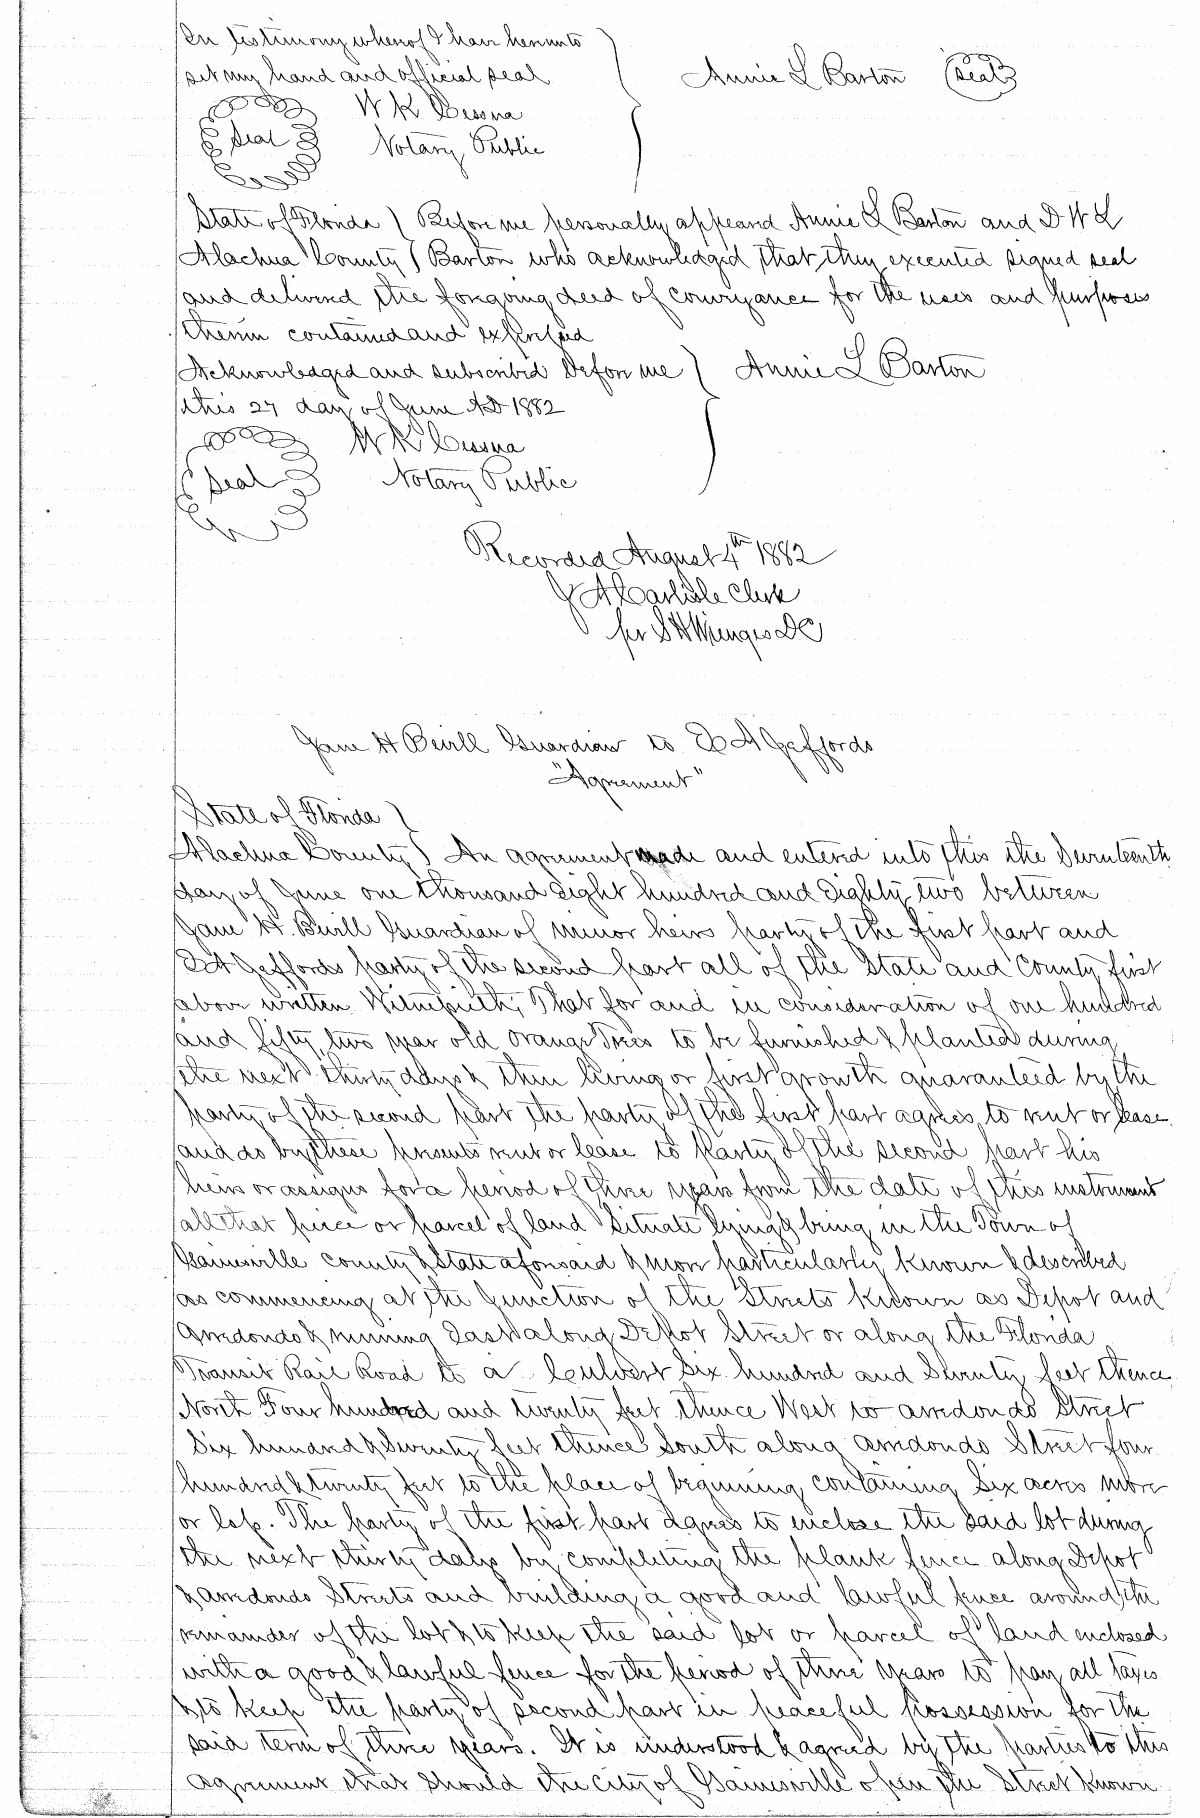 In testimony whereof I have hereunto
set my hand and official seal
Annie L Barton (Seal)
W K Cessna
Seal
Notary Public
State of Florida ) Before me personally appeard Annie L Barton and D W L
Alachua County ) Barton who acknowledged that they executed signed seal
and delivered the foregoing deed of conveyance for the uses and purposes
therein contained and expressed
Acknowledged and subscribed before me ) Annie L Barton
this 27 day of June AD 1882
W K Cessna
Seal
Notary Public
Recorded August 4th 1882
J A Carlisle Clerk
per S H Wienges DC
Jane H Bevill Guardian to E A Jeffords
"Agreement"
State of Florida )
Alachua County ) An agreement made and entered into this the Seventeenth
day of June one thousand Eight hundred and Eighty two between
Jane H. Bevill Guardian of minor heirs party of the first part and
E A Jeffords party of the second part all of the State and County first
above written Witnesseth, That for and in consideration of one hundred
and fifty, two year old orange Trees to be furnished & planted during
the next thirty days & their living or first growth guaranteed by the
party of the second part the party of the first part agrees to rent or lease
and do by these presents rent or lease to Party of the second part his
heirs or assigns for a period of three years from the date of this instrument
all that peice or parcel of land Situate lying & being in the Town of
Gainesville county & State aforesaid & more particularly known & described
as commencing at the Junction of the Streets known as Depot and
Arredondo & running East along Depot Street or along the Florida
Transit Rail Road to a Culvert Six hundred and Seventy feet thence
North Four hundred and twenty feet thence West to arredondo Street
Six hundred & Seventy feet thence South along arredondo Street four
hundred & twenty feet to the place of beginning containing Six acres more
or less. The party of the first part agrees to enclose the said lot during
the next thirty days by completing the plank fence along Depot
& arredondo Streets and building a good and lawful fence around the
remainder of the lot & to keep the said lot or parcel of land enclosed
with a good & lawful fence for the period of three years to pay all taxes
& to keep the party of second part in peaceful Possession for the
said term of three years. It is understood & agreed by the parties to this
agreement that should the city of Gainesville open the Street known